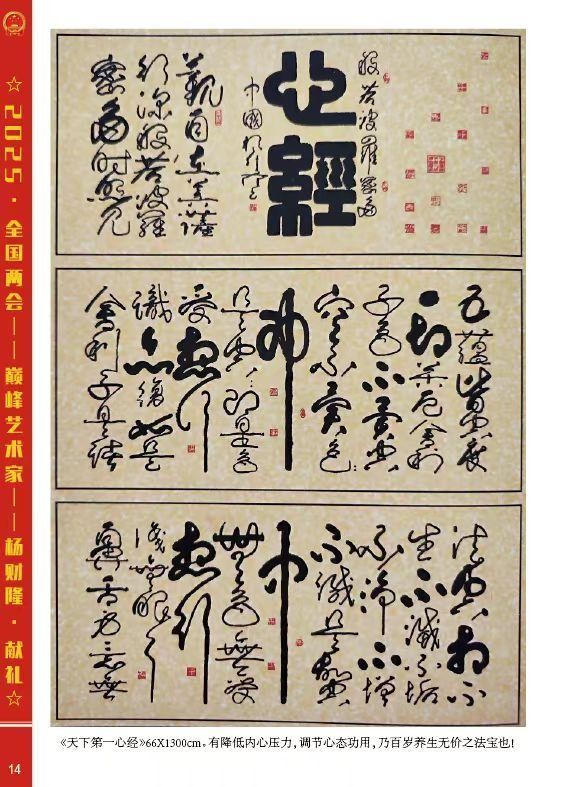 ☆2025·全国两会——巅峰艺术家——杨财隆·献礼☆
14
般若波羅蜜多
心經
中國
觀自在菩薩
行深般若波羅
蜜多時照見
五蘊皆空度
一切苦厄舍利
子色不異空
空不異色
是空即是色
受想行
識亦復如是
舍利子是諸
法空相不
生不滅不垢
不淨不增
不減是故空
中
無色無受
想行
識無眼耳
鼻舌身意無
《天下第一心经》66X1300cm。有降低内心压力，调节心态功用，乃百岁养生无价之法宝也！